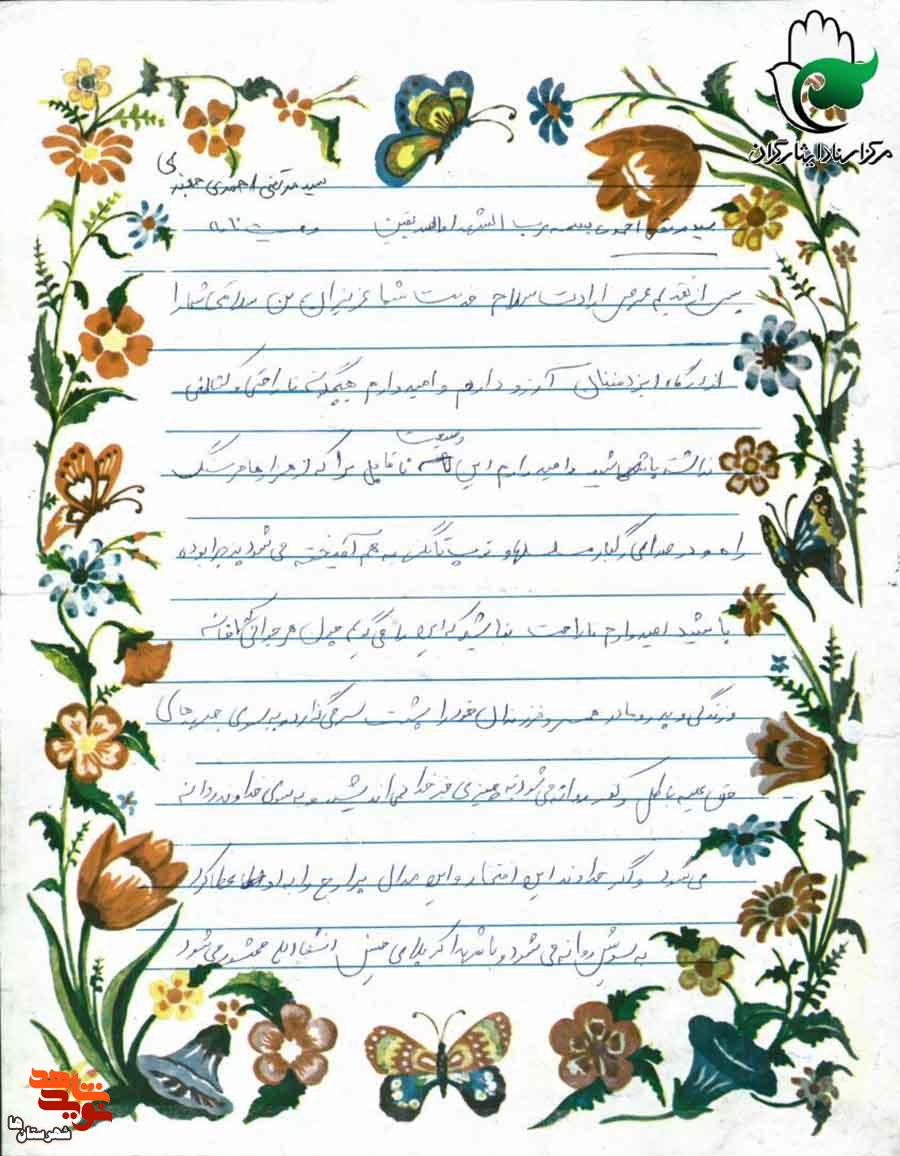 مرکز اسناد ایثارگران
سید مرتضی احمدی
سید مرتضی احمدی بسمه رب الشهدا والصدیقین وصیت نامه
پس از تقدیم عرض ارادت سلام خدمت شما عزیزان من سلامتی شما را
از درگاه ایزد منان آرزو دارم و امیدوارم هیچگونه ناراحتی و کسالتی
نداشته باشید و امیدوارم این وصیت نا قابل مرا که از فرسنگ
راه و در صدای رگبار مسلسلها و توپ تانک به هم آمیخته می شود پذیرا بوده
باشید امیدوارم ناراحت نباشید که این را می گویم چون هر جوانی که خانه
و زندگی و پدر و مادر همسر و فرزندان خود را پشت سر می گذارد و به سوی جبهه های
حق علیه باطل روانه می شود به چیزی جز خدا نمی اندیشد و به سوی خداوند روانه
می شود و اگر خداوند این افتخار و این مدال پر ارج را به او عطا کرد
به سویش روانه می شود و با شهدا کربلای حسینی انشاءالله محشور می شود
نوید شاهد
شهرستان ها